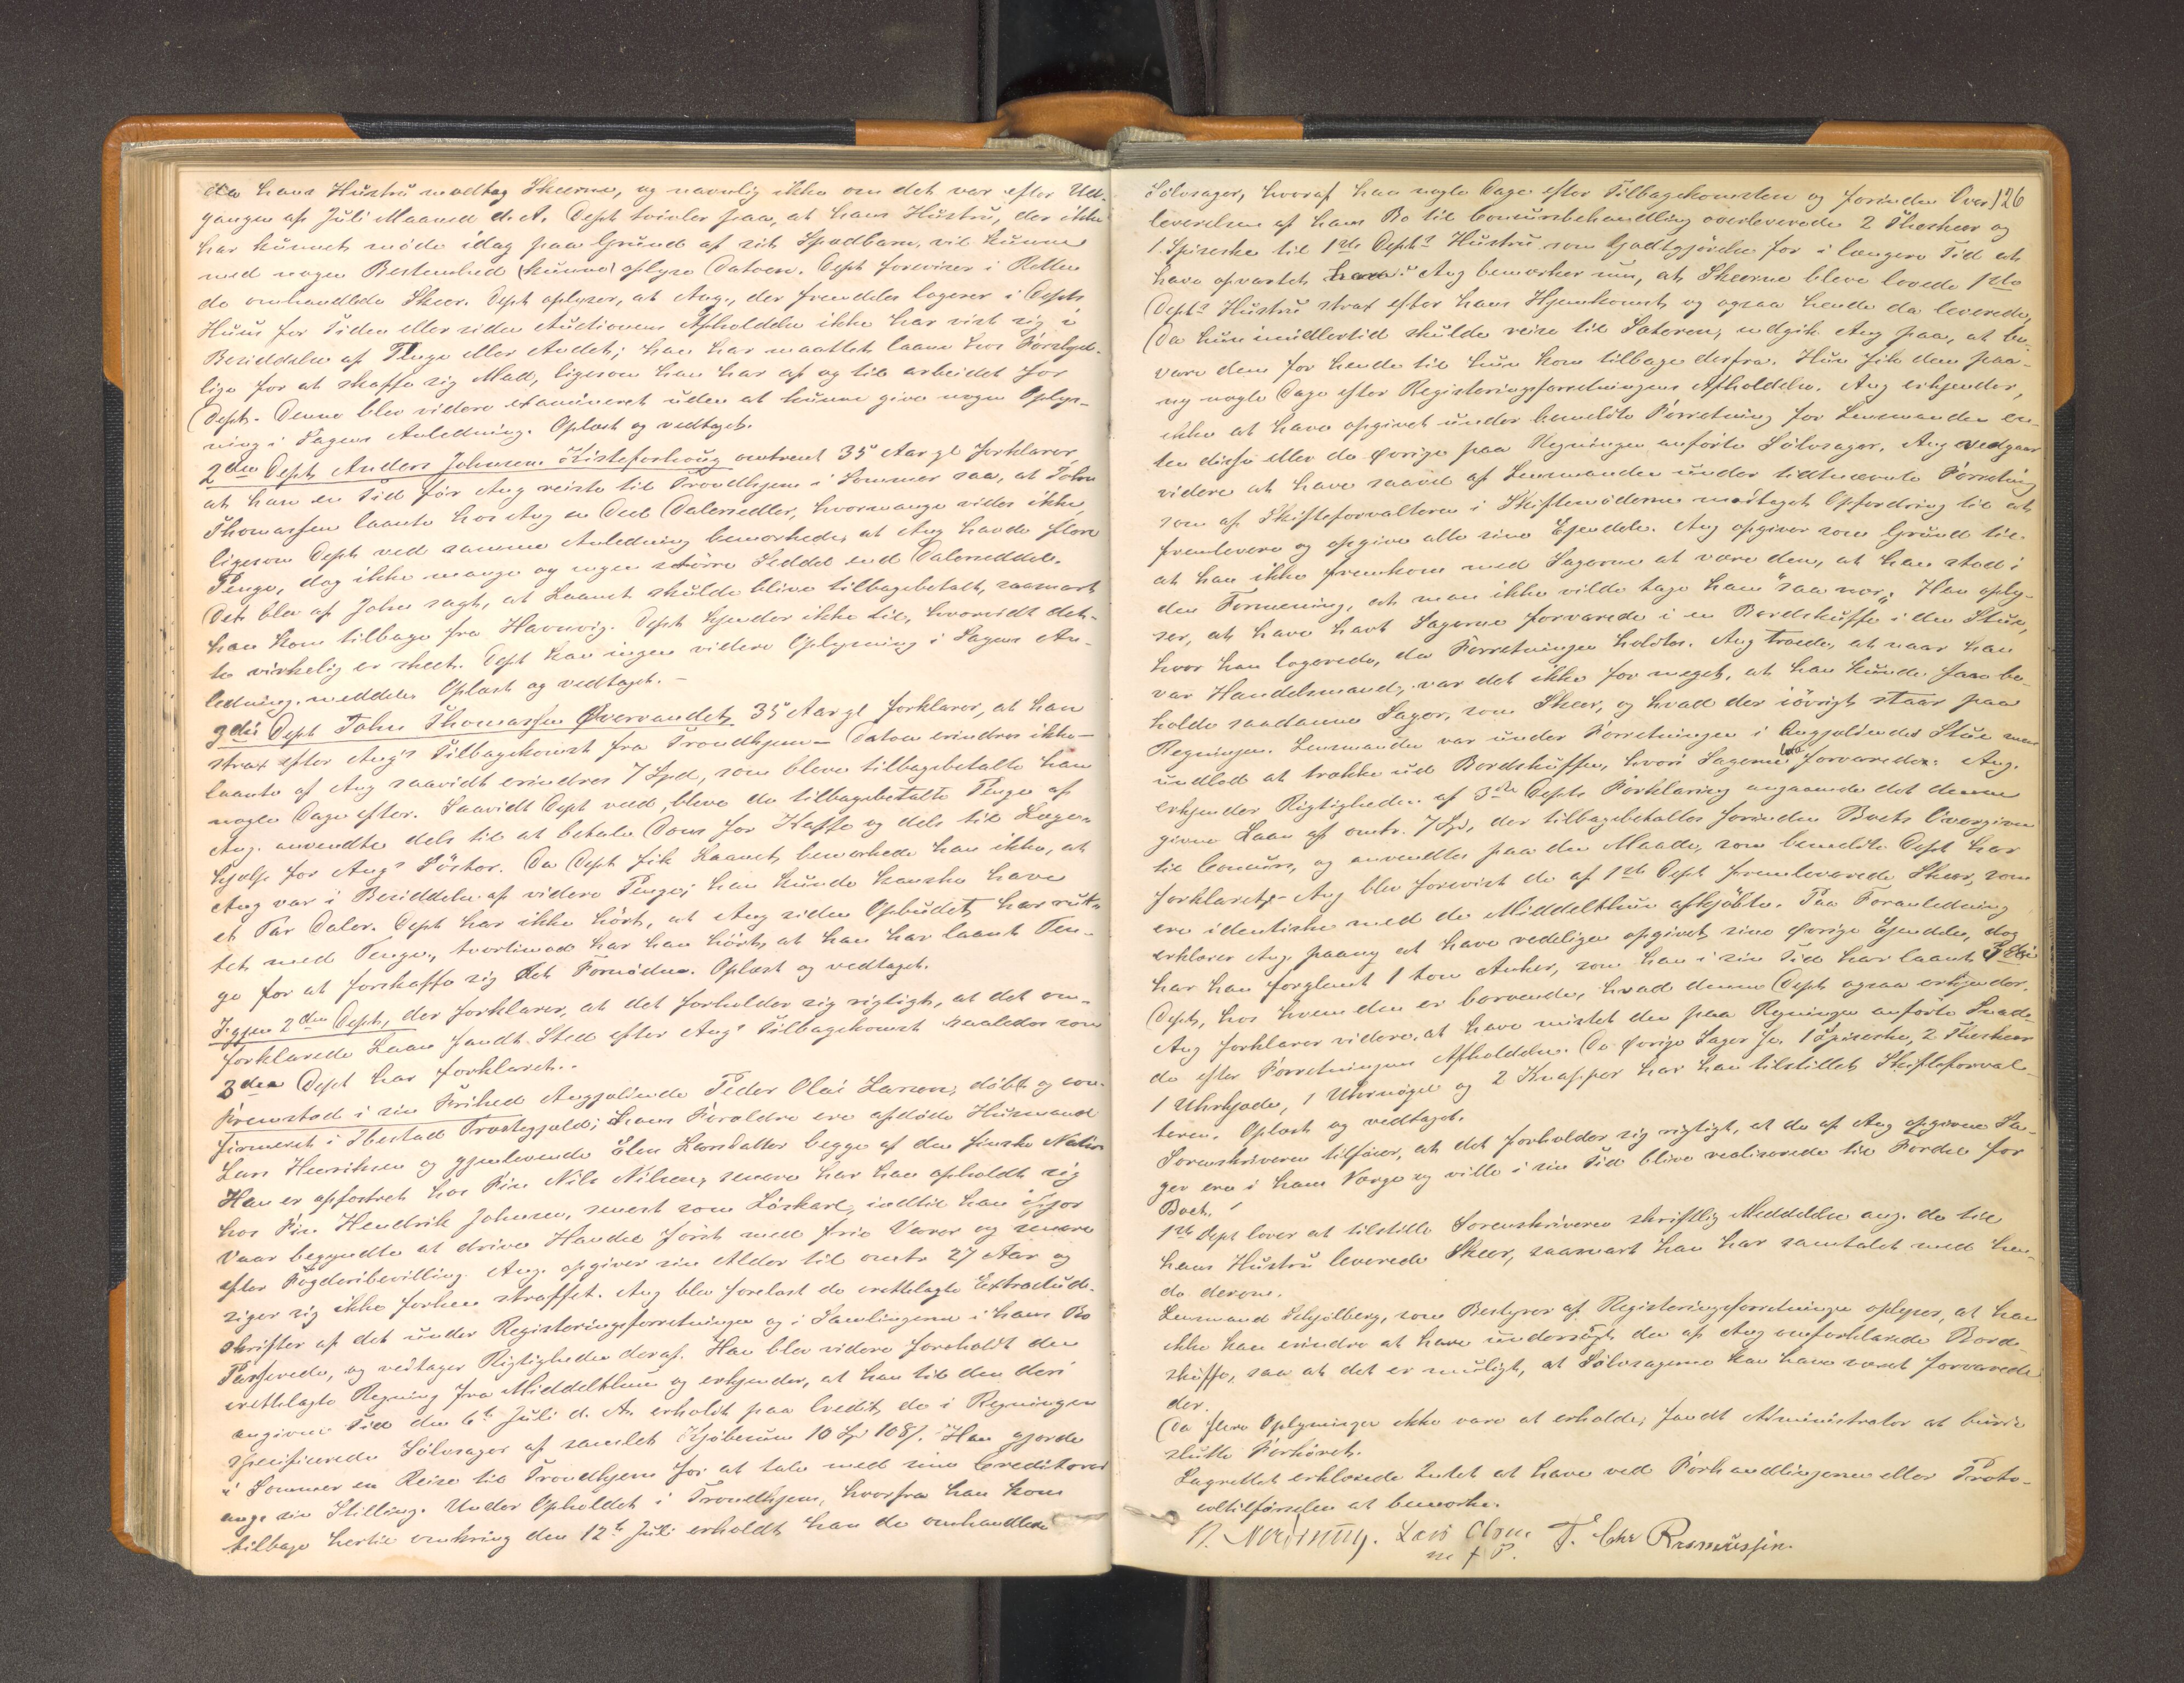 da hans Hustru modtog Skeerne, og navnlig ikke om det var efter Ud-
gangen af Juli Maaned d. A. Dept tvivler paa, at hans Hustru, der ikke
har kunnet møde idag paa Grund af sit Spædbarn, vil kunne
med nogen Bestemthed (kunne) oplyse Datoen. Dept foreviser i Retten
de omhandlede Skeer. Dept oplyser, at Ang., der fremdeles logerer i Depts
Huus for Tiden eller siden Auctionens Afholdelse ikke har vist sig i
Besiddelse af Penge eller Andet; han har maattet laane hos Forskjel-
lige for at skaffe sig Mad, ligesom han har af og til arbeidet for
Dept. Denne blev videre examineret uden at kunne give nogen Oplys-
ning i Sagens Anledning. Oplæst og vedtaget.
2den Dept Anders Johnsen Kisteforhoug omtrent 35 Aar gl forklarer,
at han en Tid før Ang reiste til Trondhjem i Sommer saa, at John
Thomassen laante hos Ang en Deel Dalersedler, hvormange vides ikke,
ligesom Dept ved samme Anledning bemærkede, at Ang havde flere
Penge, dog ikke mange og ingen større Seddel end Dalerseddel.
Det blev af John sagt, at Laanet skulde blive tilbagebetalt, saasnart
han kom tilbage fra Havnvig. Dept kjender ikke til, hvorvidt det-
te virkelig er skeet. Dept kan ingen videre Oplysning i Sagens An-
ledning meddele. Oplæst og vedtaget. –
3die Dept John Thomassen Øvervandet 35 Aar gl forklarer, at han
strax efter Ang's Tilbagekomst fra Trondhjem – Datoen erindres ikke –
laante af Ang saavidt erindres 7 Spd, som bleve tilbagebetalte han
nogle Dage efter. Saavidt Dept veed, bleve de tilbagebetalte Penge af
Ang. anvendte dels til at betale Doms for Kaffe og dels til Læge-
hjælp for Ang's Søster. Da Dept fik Laanet, bemærkede han ikke, at
Ang var i Besiddelse af videre Penge; han kunde kanske have
et Par Daler. Dept har ikke hørt, at Ang siden Opbudet har rut-
tet med Penge, tvertimod har han hørt, at han har laant Pen-
ge for at forskaffe sig det Fornødne. Oplæst og vedtaget.
Igjen 2den Dept, der forklarer, at det forholder sig rigtigt, at det om-
forklarede Laan fandt Sted efter Ang's Tilbagekomst saaledes som
3die Dept har forklaret.
Fremstod i sin Frihed Angjældende Peder Olai Larsen, døbt og con-
firmeret i Ibestad Præstegjæld; hans Forældre ere afdøde Husmand
Lars Henriksen og gjenlevende Elen Larsdatter begge af den finske Nation
Han er opfostret hos Fin Nils Nilsen, senere har han opholdt sig
hos Fin Hendrik Johnsen, senest som Løskarl, indtil han ifjor
Vaar begyndte at drive Handel først med frie Varer og senere
efter Fogderibevilling. Ang. opgiver sin Alder til omtr 27 Aar og
siger sig ikke forhen straffet. Ang blev forelæst de irettelagte Extractud-
skrifter af det under Registeringsforretningen og i Samlingerne i hans Bo
Passerede, og vedtager Rigtigheden deraf. Han blev videre foreholdt den
irettelagte Regning fra Middelthun og erkjender, at han til den deri
angivne Tid den 6te Juli d. A. erholdt paa Credit de i Regningen
specificerede Sølvsager af samlet Kjøbesum 10 Spd 108 /. Han gjorde
i Sommer en Reise til Trondhjem for at tale med sine Creditorer
ang. sin Stilling. Under Opholdet i Trondhjem, hvorfra han kom
tilbage hertil omkring den 12te Juli erholdt han de omhandlede
126
Sølvsager, hvoraf han nogle Dage efter Tilbagekomsten og forinden Over-
leverelsen af hans Bo til Concursbehandling overleverede 2 Theskeer og
1 Spiseske til 1ste Depts Hustru som Godtgjørelse for i længere Tid at
have opvartet ham. Ang bemærker nu, at Skeerne bleve lovede 1ste
Depts Hustru strax efter hans Hjemkomst og ogsaa hende da leverede,
Da hun imidlertid skulde reise til Sæteren, indgik Ang paa, at be-
vare dem for hende til hun kom tilbage derfra. Hun fik dem paa-
ny nogle Dage efter Registeringsforretningens Afholdelse. Ang erkjender,
ikke at have opgivet under bemeldte Forretning for Lensmanden en-
ten disse eller de øvrige paa Regningen anførte Sølvsager. Ang vedgaar
videre at have saavel af Lensmanden under tidtnævnte Forretning
som af Skifteforvalteren i Skiftemøderne modtaget Opfordring til at
fremlevere og opgive alle sine Ejendele. Ang opgiver som Grund til
at han ikke fremkom med Sagerne at være den, at han stod i
den Formening, at man ikke vilde tage ham "saa nær". Han oply-
ser, at have havt Sagerne forvarede i en Bordskuffe i den Stue,
hvor han logerede, da Forretningen holdtes. Ang troede, at naar han
var Handelsmand, var det ikke for meget, at han kunde faa be-
holde saadanne Sager, som Skeer, og hvad der iøvrigt staar paa
Regningen. Lensmanden var under Forretningen i Angjældendes Stue men
undlod at trække ud Bordskuffen, hvori Sagerne laa forvarede. Ang.
erkjender Rigtigheden af 3die Depts Forklaring angaaende det denne
givne Laan af omtr. 7 Spd, der tilbagebetaltes forinden Boets Overgiven
til Concurs, og anvendtes paa den Maade, som bemeldte Dept har
forklaret. – Ang blev forevist de af 1ste Dept fremleverede Skeer, som
ere identiske med de Middelthun afkjøbte. Paa Foranledning
erklærer Ang. paany at have redeligen opgivet sine øvrige Ejendele, dog
har han forglemt 1 tom Anker, som han i sin Tid har laant 3die
Dept, hos hvem den er beroende, hvad denne Dept ogsaa erkjender.
Ang forklarer videre, at have mistet den paa Regningen anførte Snad-
de efter Forretningens Afholdelse. De øvrige Sager fr. 1 Spiseske, 2 Theskeer
1 Uhrkjæde, 1 Uhrnøgel og 2 Knapper har han tilstillet Skifteforval-
teren. Oplæst og vedtaget.
Sorenskriveren tilføier, at det forholder sig rigtigt, at de af Ang opgivne Sa-
ger ere i hans Værge og ville i sin Tid blive realiserede til Fordel for
Boet.
1ste Dept lover at tilstille Sorenskriveren skriftlig Meddelelse ang. de til
hans Hustru leverede Skeer, saasnart han har samtalet med hen-
de derom.
Lensmand Schjølberg, som Bestyrer af Registeringsforretningen oplyser, at han
ikke kan erindre at have undersøgt den af Ang omforklarede Bord-
skuffe, saa at det er muligt, at Sølvsagerne kan have været forvarede
der.
Da flere Oplysninger ikke vare at erholde, fandt Administrator at burde
slutte Forhøret.
Lagrettet erklærede Intet at have ved Forhandlingerne eller Proto-
coltilførselen at bemærke.
N. Lars Olsen T. Chr Rasmussen
m f P.